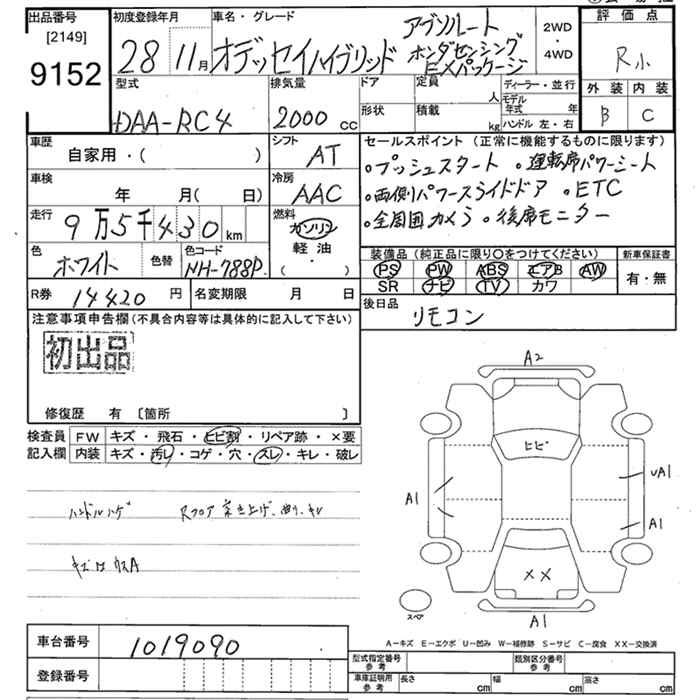 出品番号 初度登録年月 車名・グレード 評価点
[2149]
9152
28 11月 オデッセイハイブリッド
アブソルート
ホンダセンシング
EXパッケージ
2WD
・
4WD
R小
外装 内装
B C
型式 排気量 ドア 定員 人 ディーラー・並行
DAA-RC4 2000 cc 形状 積載 kg モデル年式 年
ハンドル 左・右
車歴 シフト セールスポイント (正常に機能するものに限ります)
自家用・( ) AT
。プッシュスタート 。運転席パワーシート
車検 冷房
年 月( 日) AAC
。両側パワースライドドア 。ETC
走行 燃料
9万5千430km ガソリン
軽油
・
( )
。全周囲カメラ 。後席モニター
色 色替 色コード
ホワイト NH-788P
装備品 (純正品に限り○をつけてください) 新車保証書
PS PW ABS エアB AW 有・無
SR ナビ TV カワ
R券 14420 円 名変期限 月 日
後日品
リモコン
注意事項申告欄(不具合内容等は具体的に記入して下さい)
初出品
修復歴 有 〔箇所 〕
検査員 FW キズ・飛石・ヒビ割・リペア跡・×要
記入欄 内装 キズ・汚レ・コゲ・穴・スレ・キレ・破レ
ハンドルハゲ Rフロア 突き上げ、曲り、キレ
キズ又はウスA
A2
ヒビ
A1 UA1
A1
XX
スペア
A1
A-キズ E-エクボ U-凹み W-補修跡 S-サビ C-腐食 XX-交換済
車台番号 1019090
登録番号
型式指定番号 参考 類別区分番号 参考
車庫証明用 参考 長さ cm 幅 cm 高さ cm